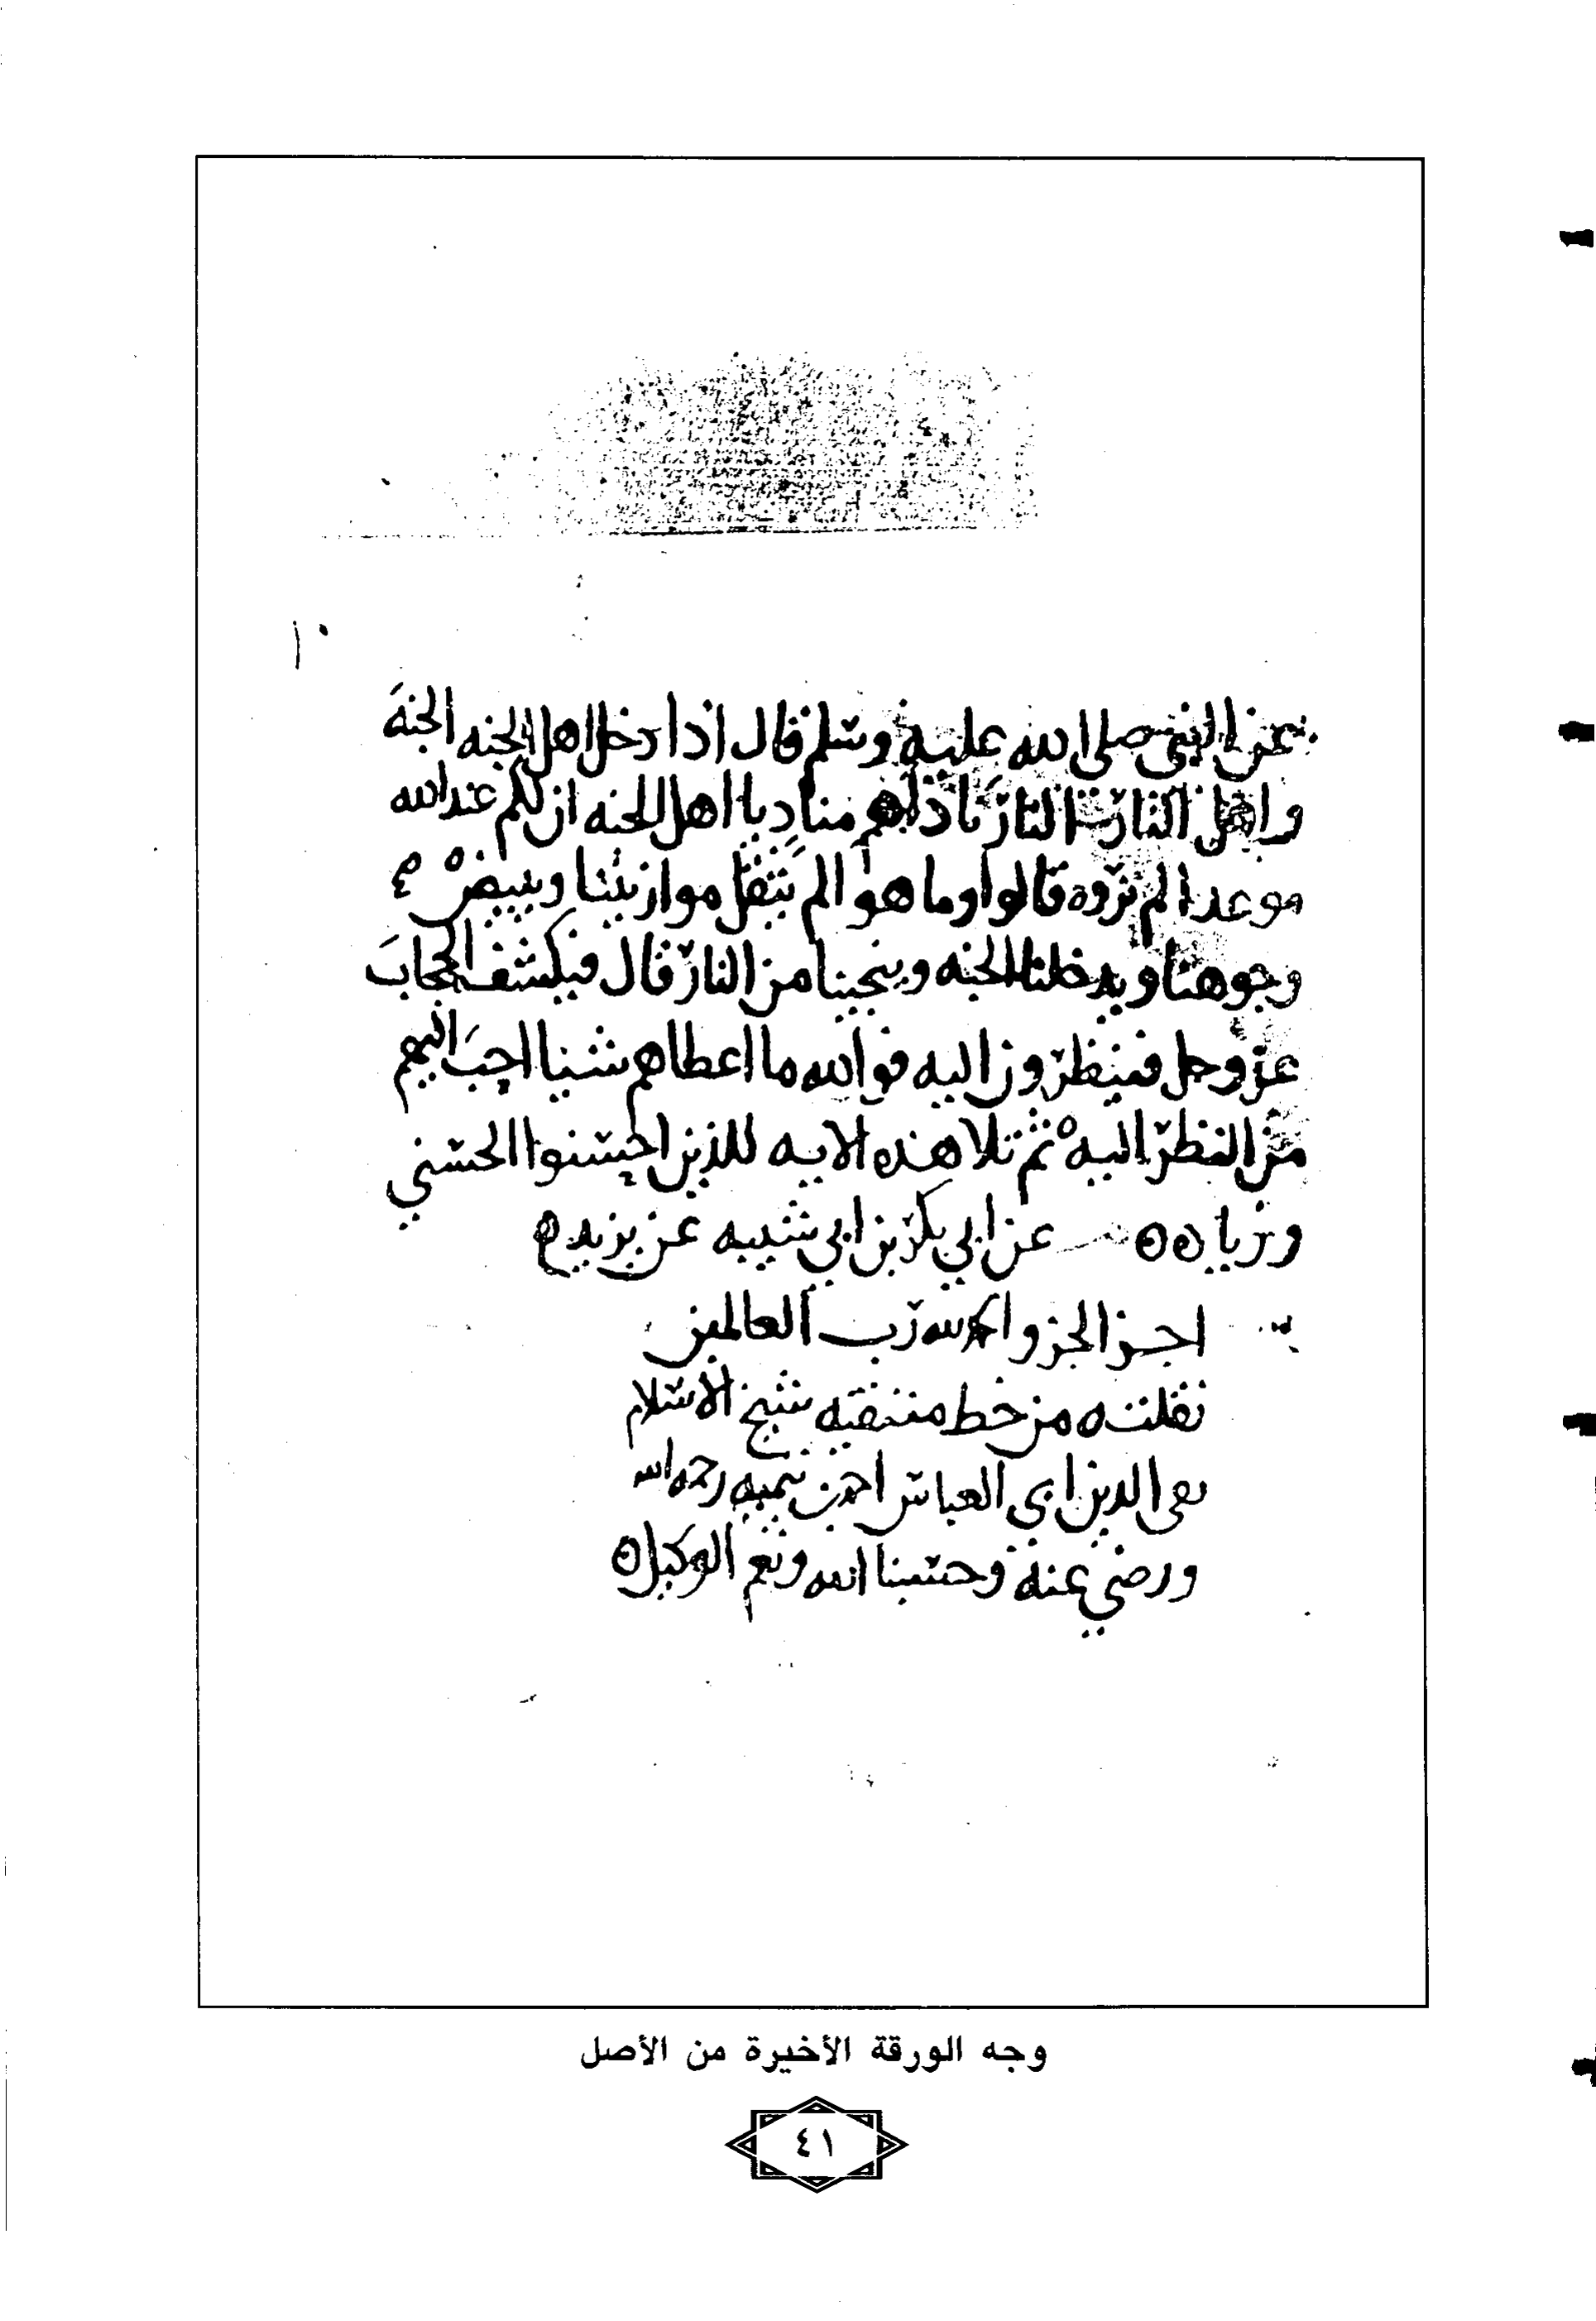 عن النبي صلى الله عليه وسلم قال اذا دخل اهل الجنه الجنة
واهل النار النار ناداهم مناد يا اهل الجنه ان لكم عند الله
موعدا لم تروه قالوا وما هو الم يثقل موازيننا ويبيض
وجوهنا ويدخلنا الجنه وينجينا من النار قال فيكشف الحجاب
عز وجل فينظرون اليه فو الله ما اعطاهم شيا احب اليهم
من النظر اليه ثم تلا هذه الايه للذين احسنوا الحسني
وزياده عن ابي بكر بن ابي شيبه عن يزيد
اخر الجزو الحمد لله رب العالمين
نقلته من خط منتقيه شيخ الاسلام
تقى الدين ابى العباس احمد بن تيميه رحمه الله
ورضي عنه وحسبنا الله ونعم الوكيل
وجه الورقة الأخيرة من الأصل
٤١